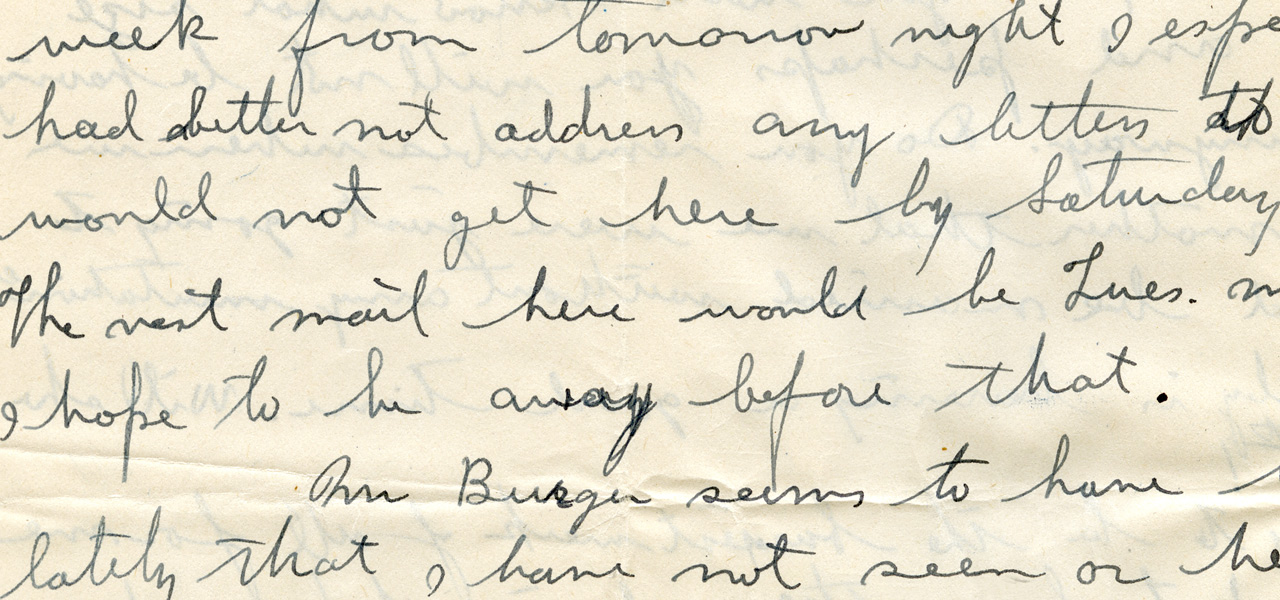 week from tomorrow night I expe
had better not address any letters to
would not get here by Saturday
The next mail here would be Tues. m
I hope to be away before that.
Mr Burger seems to have
lately that I have not seen or he